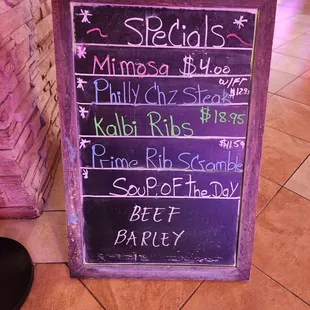 ~ SPeciaLs ~
Mimosa $4.00
W/FF
Philly Chz Steak
Kalbi Ribs $18.95
Prime Rib Scramble
SOUP OF The DAY
BEEF
BARLEY